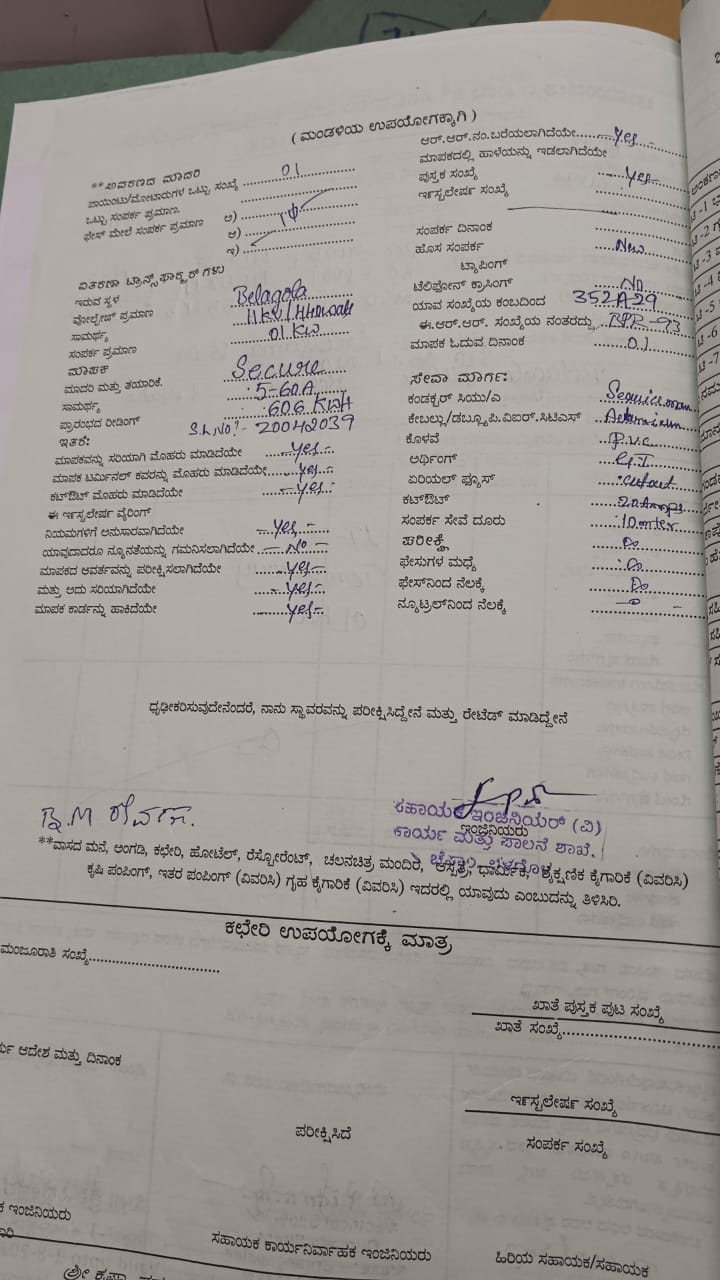 ( ಮಂಡಳಿಯ ಉಪಯೋಗಕ್ಕಾಗಿ )
**ಆವರಣದ ಮಾದರಿ
ಪಾಯಿಂಟು/ಮೋಟಾರುಗಳ ಒಟ್ಟು ಸಂಖ್ಯೆ ........ 01
ಒಟ್ಟು ಸಂಪರ್ಕ ಪ್ರಮಾಣ.
ಫೇಸ್ ಮೇಲೆ ಸಂಪರ್ಕ ಪ್ರಮಾಣ ಅ) ........
ಆ) ........ 1φ
ಇ) ........
ವಿತರಣಾ ಟ್ರಾನ್ಸ್‌ಫಾರ್ಮರ್‌ಗಳು
ಇರುವ ಸ್ಥಳ Belagola
ವೋಲ್ಟೇಜ್ ಪ್ರಮಾಣ 11KV/
ಸಾಮರ್ಥ್ಯ
ಸಂಪರ್ಕ ಪ್ರಮಾಣ 01 KW
ಮಾಪಕ
ಮಾದರಿ ಮತ್ತು ತಯಾರಿಕೆ. Secure
ಸಾಮರ್ಥ್ಯ : 5-60A
ಪ್ರಾರಂಭದ ರೀಡಿಂಗ್ : 606 KWH
ಇತರೆ: S.L No:- 20042039
ಮಾಪಕವನ್ನು ಸರಿಯಾಗಿ ಮೊಹರು ಮಾಡಿದೆಯೇ ....Yes....
ಮಾಪಕ ಟರ್ಮಿನಲ್ ಕವರನ್ನು ಮೊಹರು ಮಾಡಿದೆಯೇ....Yes....
ಕಟ್‌ಔಟ್ ಮೊಹರು ಮಾಡಿದೆಯೇ ....Yes....
ಈ ಇನ್ಸ್ಟಲೇಷನ್ ವೈರಿಂಗ್
ನಿಯಮಗಳಿಗೆ ಅನುಸಾರವಾಗಿದೆಯೇ ....Yes....
ಯಾವುದಾದರೂ ನ್ಯೂನತೆಯನ್ನು ಗಮನಿಸಲಾಗಿದೆಯೇ ....No....
ಮಾಪಕದ ಆವರ್ತವನ್ನು ಪರೀಕ್ಷಿಸಲಾಗಿದೆಯೇ ....Yes....
ಮತ್ತು ಅದು ಸರಿಯಾಗಿದೆಯೇ ....Yes....
ಮಾಪಕ ಕಾರ್ಡನ್ನು ಹಾಕಿದೆಯೇ ....Yes....
ಆರ್.ಆರ್.ನಂ.ಬರೆಯಲಾಗಿದೆಯೇ........Yes..
ಮಾಪಕದಲ್ಲಿ ಹಾಳೆಯನ್ನು ಇಡಲಾಗಿದೆಯೇ
ಪುಸ್ತಕ ಸಂಖ್ಯೆ ........Yes..
ಇನ್ಸ್ಟಲೇಷನ್ ಸಂಖ್ಯೆ
ಸಂಪರ್ಕ ದಿನಾಂಕ
ಹೊಸ ಸಂಪರ್ಕ ........New
ಟ್ಯಾಪಿಂಗ್
ಟೆಲಿಫೋನ್ ಕ್ರಾಸಿಂಗ್ ........No
ಯಾವ ಸಂಖ್ಯೆಯ ಕಂಬದಿಂದ 352A29
ಈ.ಆರ್.ಆರ್. ಸಂಖ್ಯೆಯ ನಂತರದ್ದು ..BPR-93
ಮಾಪಕ ಓದುವ ದಿನಾಂಕ ........01
ಸೇವಾ ಮಾರ್ಗ:
ಕಂಡಕ್ಟರ್ ಸಿಯು/ಎ
ಕೇಬಲ್ಲು/ಡಬ್ಲ್ಯೂ.ಪಿ.ವಿಐರ್.ಸಿಟಿಎಸ್
ಕೊಳವೆ : P.V.C
ಅರ್ಥಿಂಗ್ : G.I
ಏರಿಯಲ್ ಫ್ಯೂಸ್ : cutout
ಕಟ್‌ಔಟ್ 20Amps
ಸಂಪರ್ಕ ಸೇವೆ ದೂರು : 10 mter
ಪರೀಕ್ಷೆ : Do
ಫೇಸುಗಳ ಮಧ್ಯೆ : Do
ಫೇಸ್‌ನಿಂದ ನೆಲಕ್ಕೆ Do
ನ್ಯೂಟ್ರಲ್‌ನಿಂದ ನೆಲಕ್ಕೆ
ಧೃಢೀಕರಿಸುವುದೇನೆಂದರೆ, ನಾನು ಸ್ಥಾವರವನ್ನು ಪರೀಕ್ಷಿಸಿದ್ದೇನೆ ಮತ್ತು ರೇಟೆಡ್ ಮಾಡಿದ್ದೇನೆ
ಸಹಾಯಕ ಇಂಜಿನಿಯರ್ (ವಿ)
ಇಂಜಿನಿಯರು
ಕಾರ್ಯ ಮತ್ತು ಪಾಲನೆ ಶಾಖೆ,
**ವಾಸದ ಮನೆ, ಅಂಗಡಿ, ಕಛೇರಿ, ಹೋಟೆಲ್, ರೆಸ್ಟೋರೆಂಟ್, ಚಲನಚಿತ್ರ ಮಂದಿರ, ಆಸ್ಪತ್ರೆ, ಧಾರ್ಮಿಕ, ಶೈಕ್ಷಣಿಕ ಕೈಗಾರಿಕೆ (ವಿವರಿಸಿ)
ಕೃಷಿ ಪಂಪಿಂಗ್, ಇತರ ಪಂಪಿಂಗ್ (ವಿವರಿಸಿ) ಗೃಹ ಕೈಗಾರಿಕೆ (ವಿವರಿಸಿ) ಇದರಲ್ಲಿ ಯಾವುದು ಎಂಬುದನ್ನು ತಿಳಿಸಿರಿ.
ಕಛೇರಿ ಉಪಯೋಗಕ್ಕೆ ಮಾತ್ರ
ಮಂಜೂರಾತಿ ಸಂಖ್ಯೆ........
ಖಾತೆ ಪುಸ್ತಕ ಪುಟ ಸಂಖ್ಯೆ
ಖಾತೆ ಸಂಖ್ಯೆ........
ಆದೇಶ ಮತ್ತು ದಿನಾಂಕ
ಇನ್ಸ್ಟಲೇಷನ್ ಸಂಖ್ಯೆ
ಪರೀಕ್ಷಿಸಿದೆ
ಸಂಪರ್ಕ ಸಂಖ್ಯೆ
ಇಂಜಿನಿಯರು
ಸಹಾಯಕ ಕಾರ್ಯನಿರ್ವಾಹಕ ಇಂಜಿನಿಯರು
ಹಿರಿಯ ಸಹಾಯಕ/ಸಹಾಯಕ